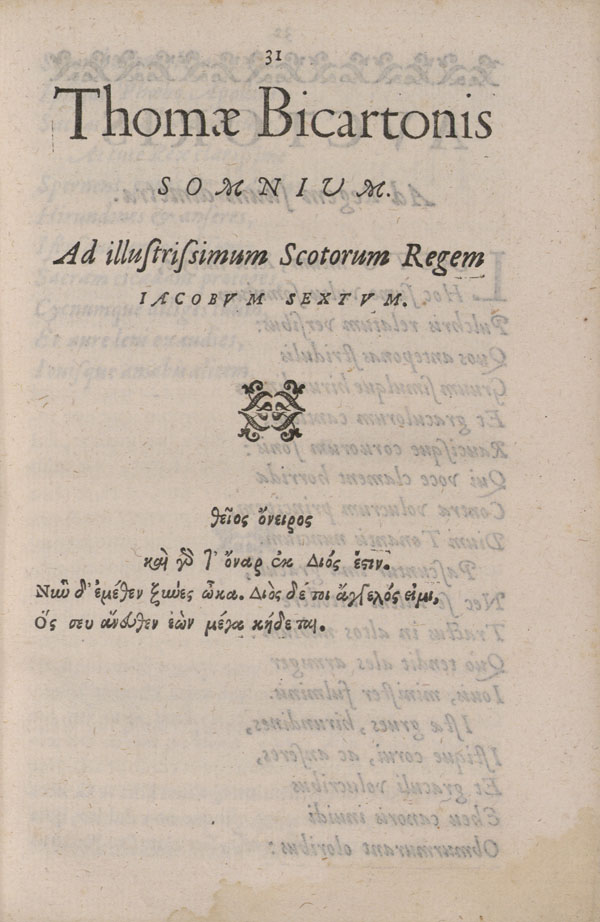 31
Thomæ Bicartonis
SOMNIVM.
Ad illustrissimum Scotorum Regem
IACOBVM SEXTVM.
θεῖος ὄνειρος
καὶ γὸ τ' ὄναρ ἐκ Διός ἐστιν.
Νῦν δ' ἐμέθεν ξυύες ὦκα. Διὸς δέ τοι ἄγγελός εἰμι,
Ὅς σευ ἄνευθεν ἐὼν μέγα κήδεται.